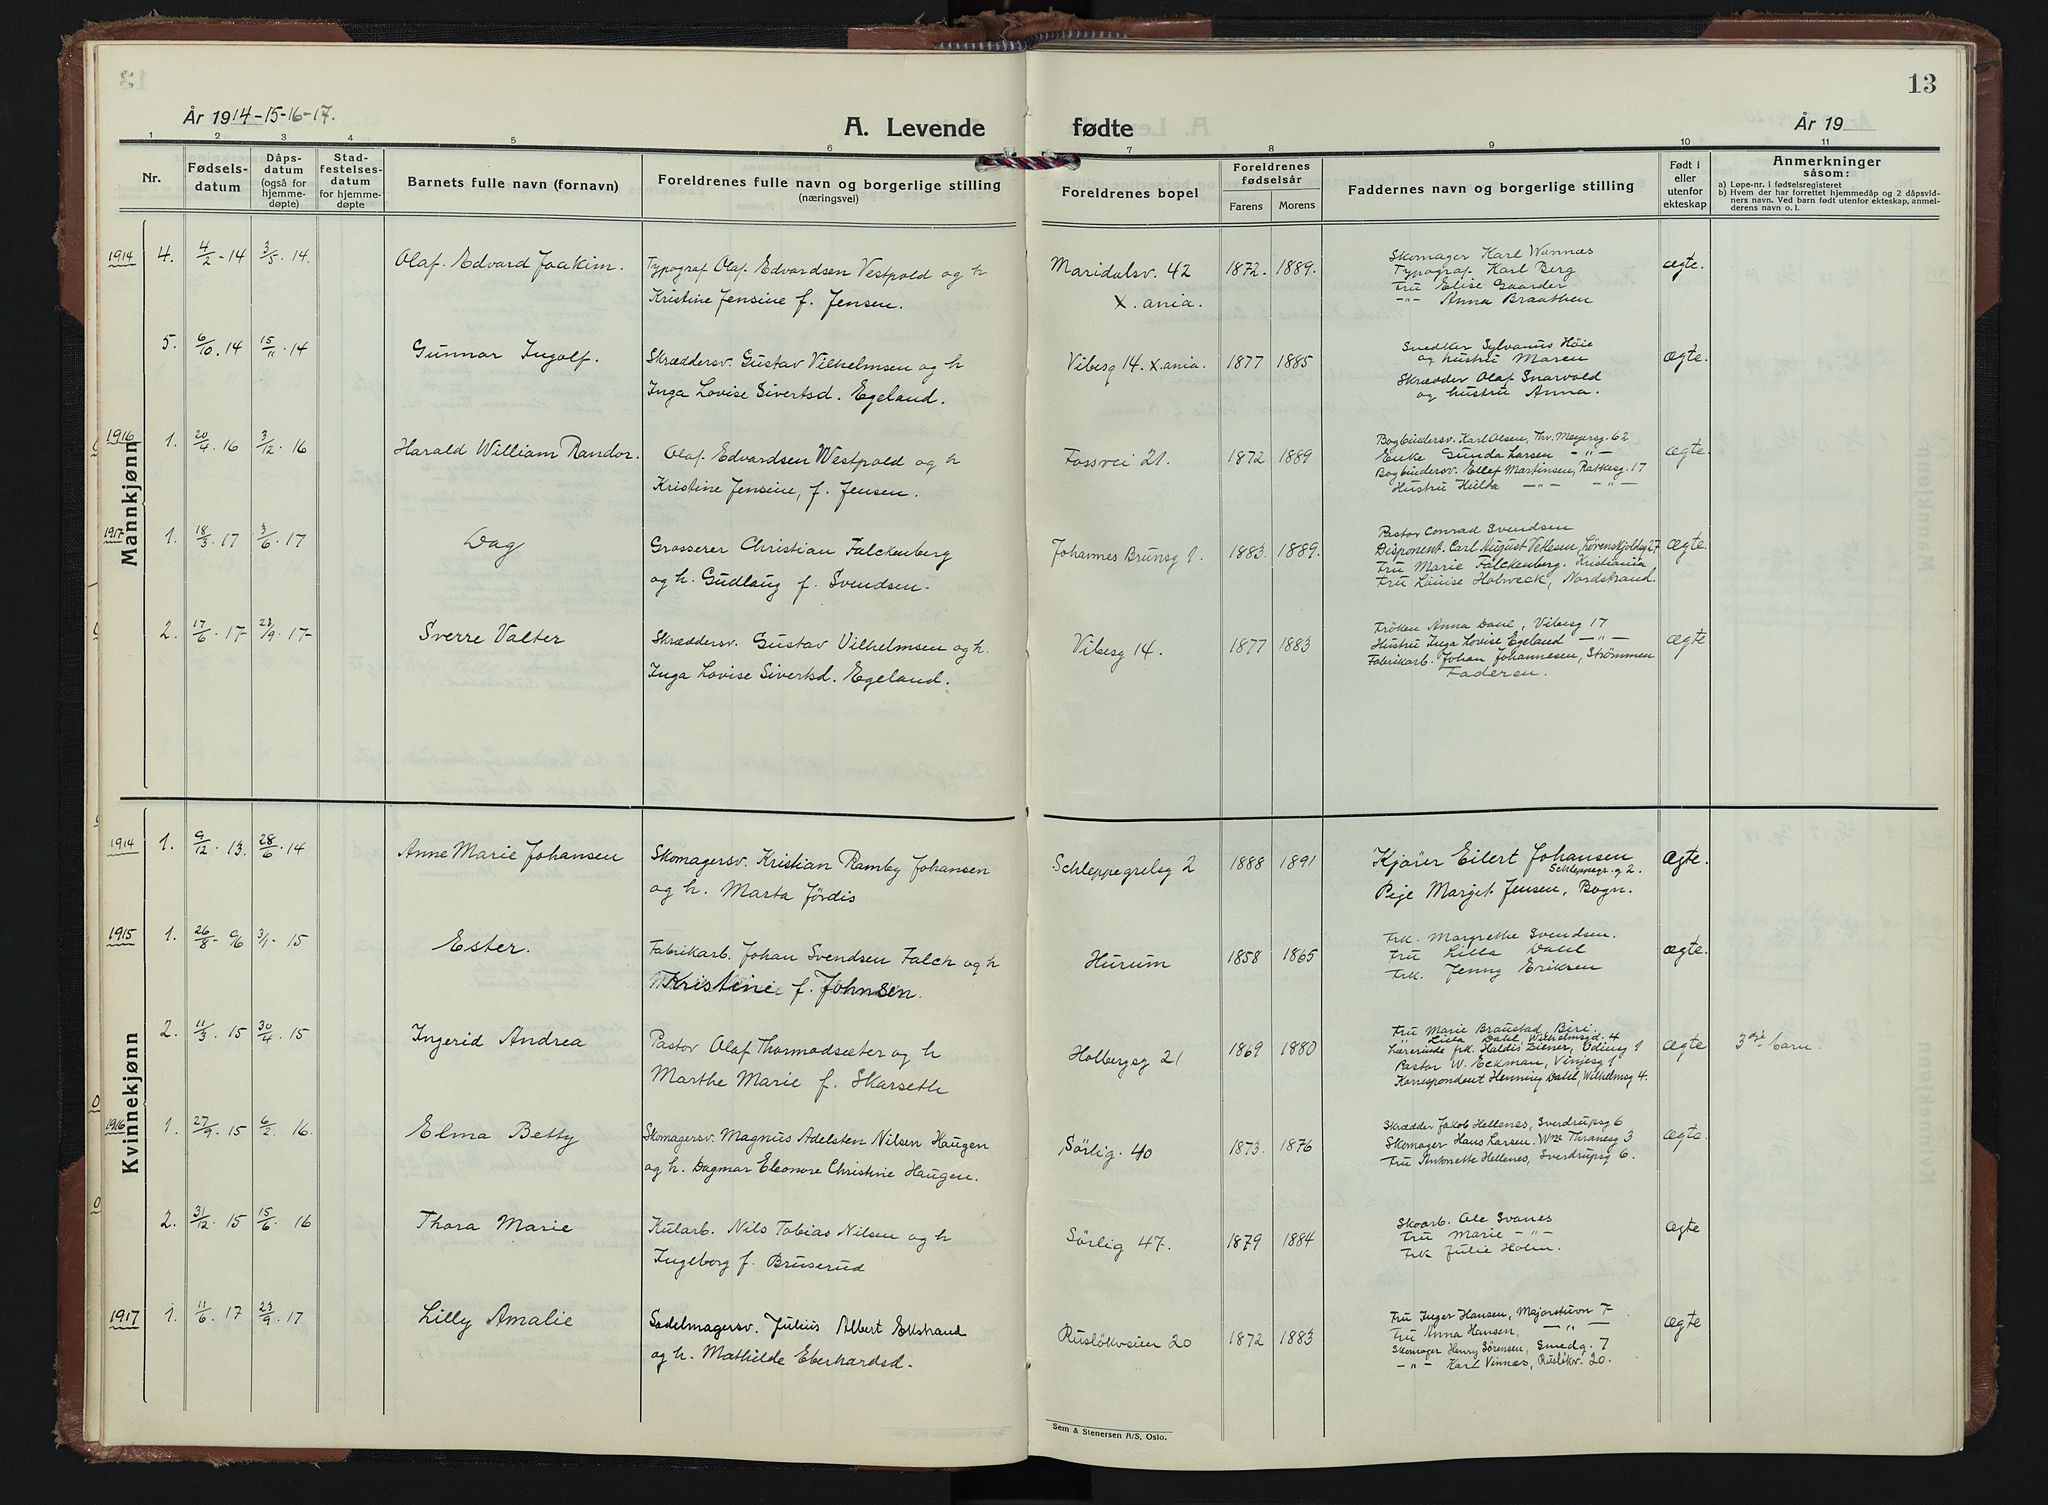 13
År 1914-15-16-17.
A. Levende fødte
År 19
1 2 3 4 5 6 7 8 9 10 11
Nr.
Fødsels-
datum
Dåps-
datum
(også for
hjemme-
døpte)
Stad-
festelses-
datum
for hjemme-
døpte
Barnets fulle navn (fornavn)
Foreldrenes fulle navn og borgerlige stilling
(næringsvei)
Foreldrenes bopel
Foreldrenes
fødselsår
Farens Morens
Faddernes navn og borgerlige stilling
Født i
eller
utenfor
ekteskap
Anmerkninger
såsom:
a) Løpe-nr. i fødselsregisteret
b) Hvem der har forrettet hjemmedåp og 2 dåpsvid-
ners navn. Ved barn født utenfor ekteskap, anmel-
derens navn o. l.
Mannkjønn
1914 4. 4/2-14 3/5.14 Olaf Edvard Joakim.
Typograf Olaf Edvardsen Vestpold og h
Kristine Jensine f. Jensen.
Maridalsv. 42
X.ania.
1872. 1889.
Skomager Karl Wannes
Typograf Karl Berg
Fru Elise Gaarder
-"- Anna Braathen
ægte.
5. 6/10.14 15/11.14 Gunnar Ingolf.
Skræddersv. Gustav Vilhelmsen og h
Inga Lovise Sivertsd. Egeland.
Vibesg 14. X.ania.
1877 1885
Snedker Sylvanus Höie
og hustru Maren
Skrædder Olaf Snarvold
og hustru Anna.
ægte.
1916 1. 20/4.16 3/12.16 Harald William Randor.
Olaf Edvardsen Westpold og h
Kristine Jensine, f. Jensen.
Fossvei 21.
1872 1889
Bogbindersv. Karl Olsen, Thv. Meyersg. 62
Enke Gunda Larsen -"-
Bogbindersv. Ellef Martinsen, Ratkesg. 17
Hustru Hulda -"- -"-
ægte.
1917 1. 18/3.17 3/6.17 Dag
Grosserer Christian Falckenberg
og h. Gudlaug f. Svendsen.
Johannes Brunsg 1.
1883. 1889.
Pastor Conrad Svendsen
Disponent. Carl August Vetlesen, Lövenskjoldsg 27
Fru Marie Falckenberg. Kristiania
Fru Louise Holweck, Nordstrand.
ægte.
2. 17/6.17- 23/9.17- Sverre Valter
Skræddersv. Gustav Vilhelmsen og h.
Inga Lovise Sivertsd. Egeland.
Vibesg 14.
1877 1883
Fröken Anna Dahl, Vibesg 17
Hustru Inga Lovise Egeland -"-
Fabrikarb. Johan Johannesen, Strömmen
Faderen.
ægte
Kvinnekjønn
1914 1. 9/12.13. 28/6.14 Anne Marie Johansen
Skomagersv. Kristian Ramby Johansen
og h. Marta Jördis
Schleppegrelsg 2
1888 1891
Kjörer Eilert Johansen
Schleppegr. g 2.
Pige Margit Jensen, Bogn.
ægte.
1915 1. 26/8- 3/1-15 Ester.
Fabrikarb. Johan Svendsen Falch og h
Kristine f. Johnsen.
Hurum
1858 1865
Frk. Margrethe Svendsen.
Fru Lilla Dahl
Frk. Jenny Eriksen
ægte.
2. 11/3.15 30/4.15 Ingerid Andrea
Pastor Olaf Thormodsæter og h
Marthe Marie f. Skarseth
Holbergsg 21
1869 1880
Fru Marie Braustad, Biri.
" Lilla Dahl, Wilhelmsgd. 4
Lærerinde frk. Haldis Ziener, Odinsg 1
Pastor W. Eckman, Vinjesg 1
Korrespondent Henning Dahl, Wilhelmsg 4.
ægte 3dje barn.
1916 1. 27/9.15 6/2.16. Elma Betty
Skomagersv. Magnus Adelsten Nilsen Haugen
og h. Dagmar Eleonore Christine Haugen.
Sörlig. 40
1873. 1876
Skrædder Jakob Hellenes, Sverdrupsg 6
Skomager Hans Larsen. Wm Thranesg 3
Fru Antonette Hellenes, Sverdrupsg 6.
ægte.
2. 31/12.15 15/6.16 Thora Marie
Kularb. Nils Tobias Nilsen og h
Ingeborg f. Bruserud
Sörlig 47.
1879 1884
Skoarb. Ole Svanes
Fru Marie -"-
Frk Julie Holm.
ægte
1917 1. 11/6.17 23/9.17 Lilly Amalie
Sadelmagersv. Julius Albert Ekstrand
og h. Mathilde Eberhardsd.
Ruslökveien 20
1872 1883
Fru Inger Hansen, Majorstuvn 7
Fru Anna Hansen, -"-
Skomager Henry Sörensen, Smedg. 7
-"- Karl Vinnes, Ruslökv. 20.
ægte
Sem & Stenersen A/S, Oslo.